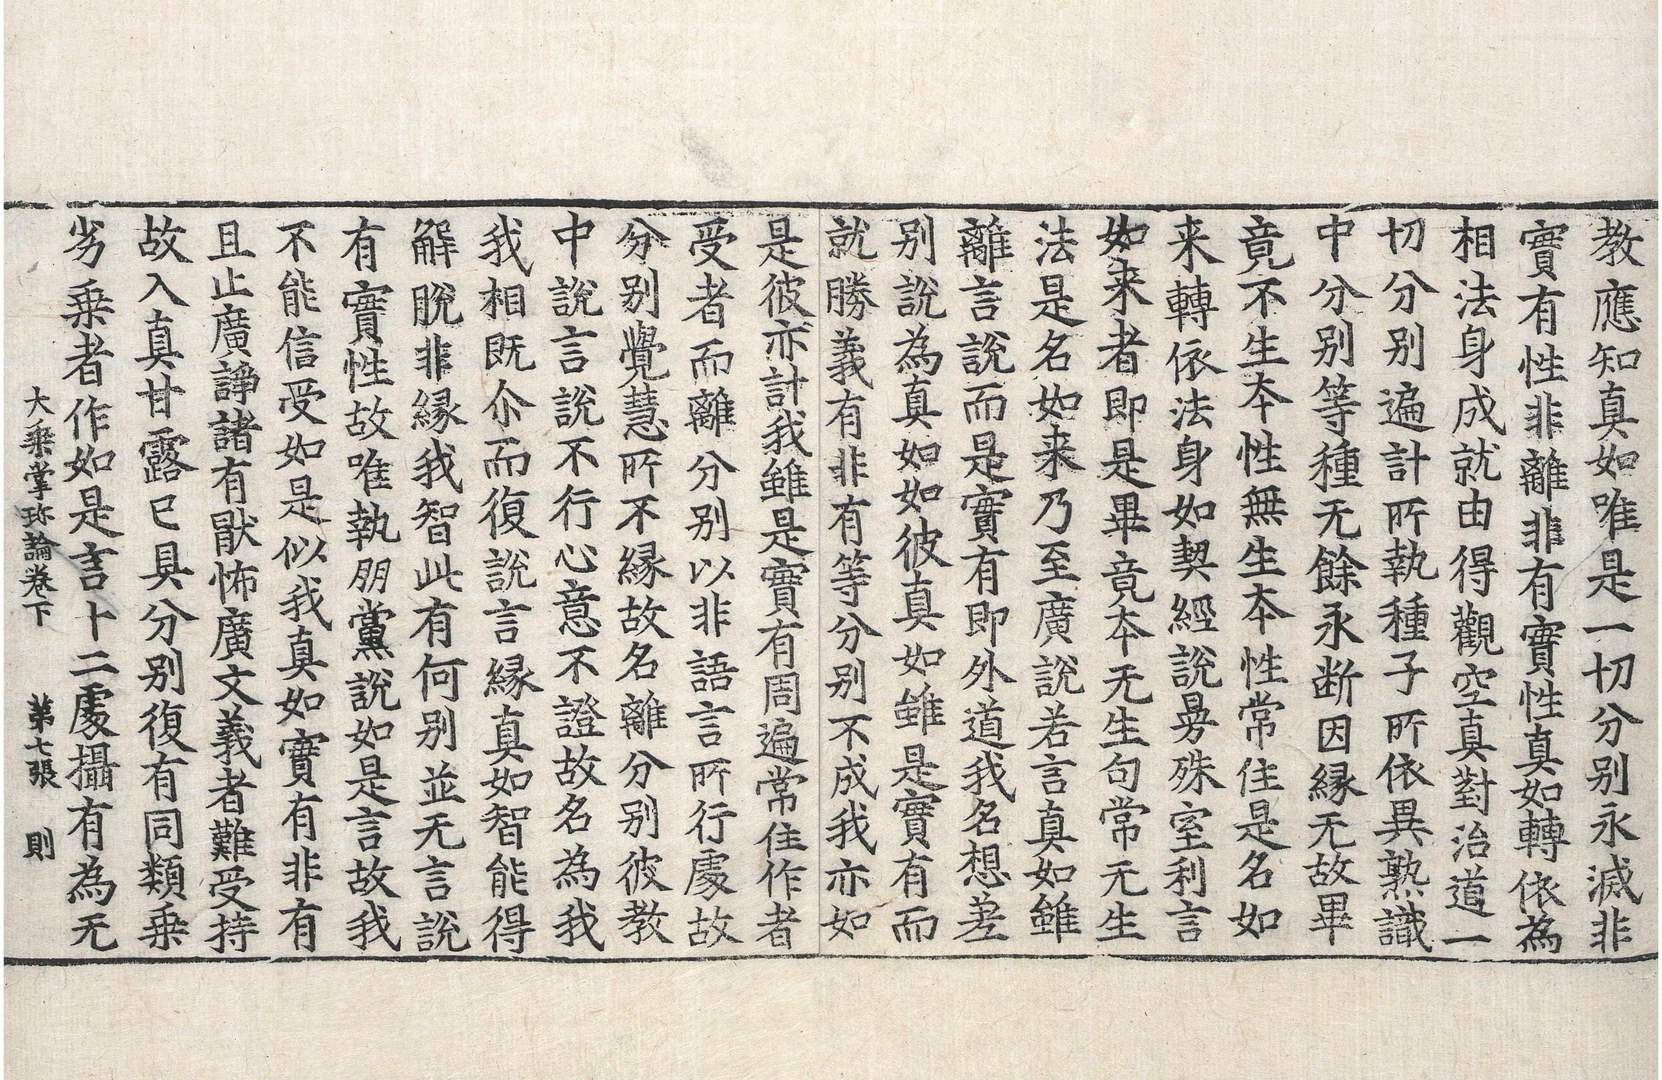 教應知真如唯是一切分别永滅非
實有性非離非有實性真如轉依為
相法身成就由得觀空真對治道一
切分别遍計所執種子所依異熟識
中分别等種无餘永断因緣无故畢
竟不生本性無生本性常住是名如
来轉依法身如契經說曼殊室利言
如来者即是畢竟本无生句常无生
法是名如来乃至廣說若言真如雖
離言說而是實有即外道我名想差
别說為真如如彼真如雖是實有而
就勝義有非有等分别不成我亦如
是彼亦計我雖是實有周遍常住作者
受者而離分别以非語言所行處故
分别覺慧所不緣故名離分别彼教
中說言說不行心意不證故名為我
我相既尒而復說言緣真如智能得
解脫非緣我智此有何别並无言說
有實性故唯執朋黨說如是言故我
不能信受如是似我真如實有非有
且止廣諍諸有猒怖廣文義者難受持
故入真甘露已具分别復有同類乗
劣乗者作如是言十二處攝有為无
大乗掌珎論卷下 第七張 則